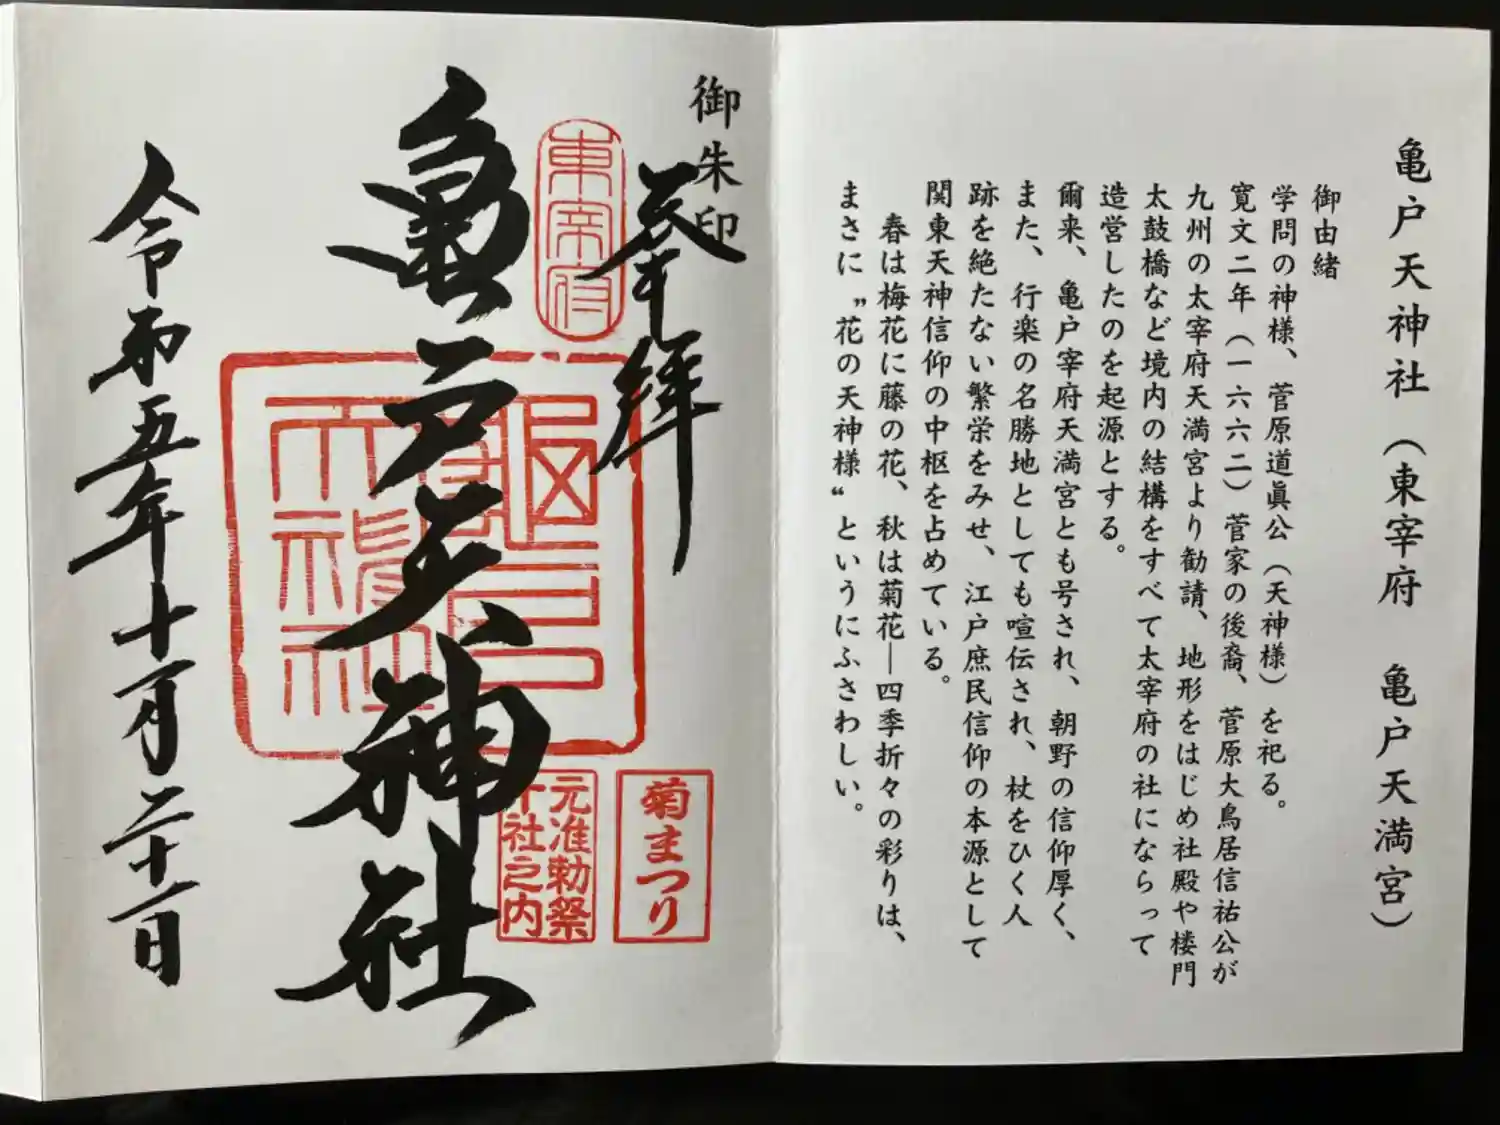 亀戸天神社（東宰府 亀戸天満宮）
御由緒
学問の神様、菅原道眞公（天神様）を祀る。
寛文二年（一六六二）菅家の後裔、菅原大鳥居信祐公が
九州の太宰府天満宮より勧請、地形をはじめ社殿や楼門
太鼓橋など境内の結構をすべて太宰府の社にならって
造営したのを起源とする。
爾来、亀戸宰府天満宮とも号され、朝野の信仰厚く、
また、行楽の名勝地としても喧伝され、杖をひく人
跡を絶たない繁栄をみせ、江戸庶民信仰の本源として
関東天神信仰の中枢を占めている。
春は梅花に藤の花、秋は菊花―四季折々の彩りは、
まさに〝花の天神様〟というにふさわしい。
御朱印
奉拝
東宰府
菊まつり
元准勅祭
十社之内
亀戸天神社
亀戸天神社
令和五年十一月二十一日